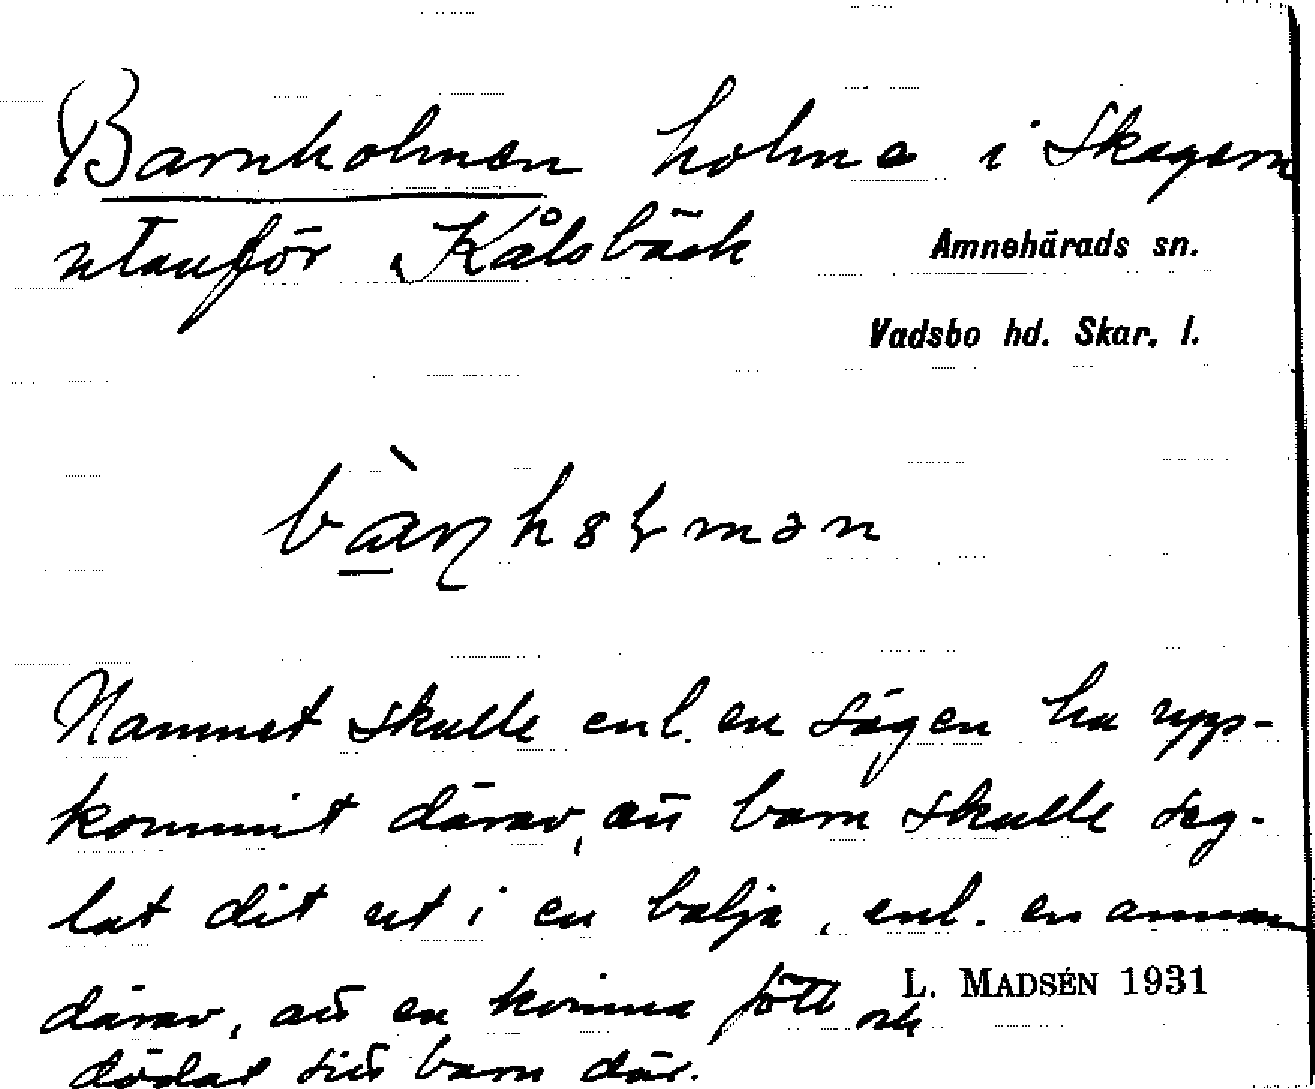 Barnholmen holme i Skagern
utanför Kålsbäck
Amnehärads sn.
Vadsbo hd. Skar. l.
Namnet skulle enl. en sägen ha upp-
kommit därav, att barn skulle seg-
lat dit ut i en balja, enl. en annan
därav, att en kvinna fött och
L. MADSÉN 1931
dödat sitt barn där.